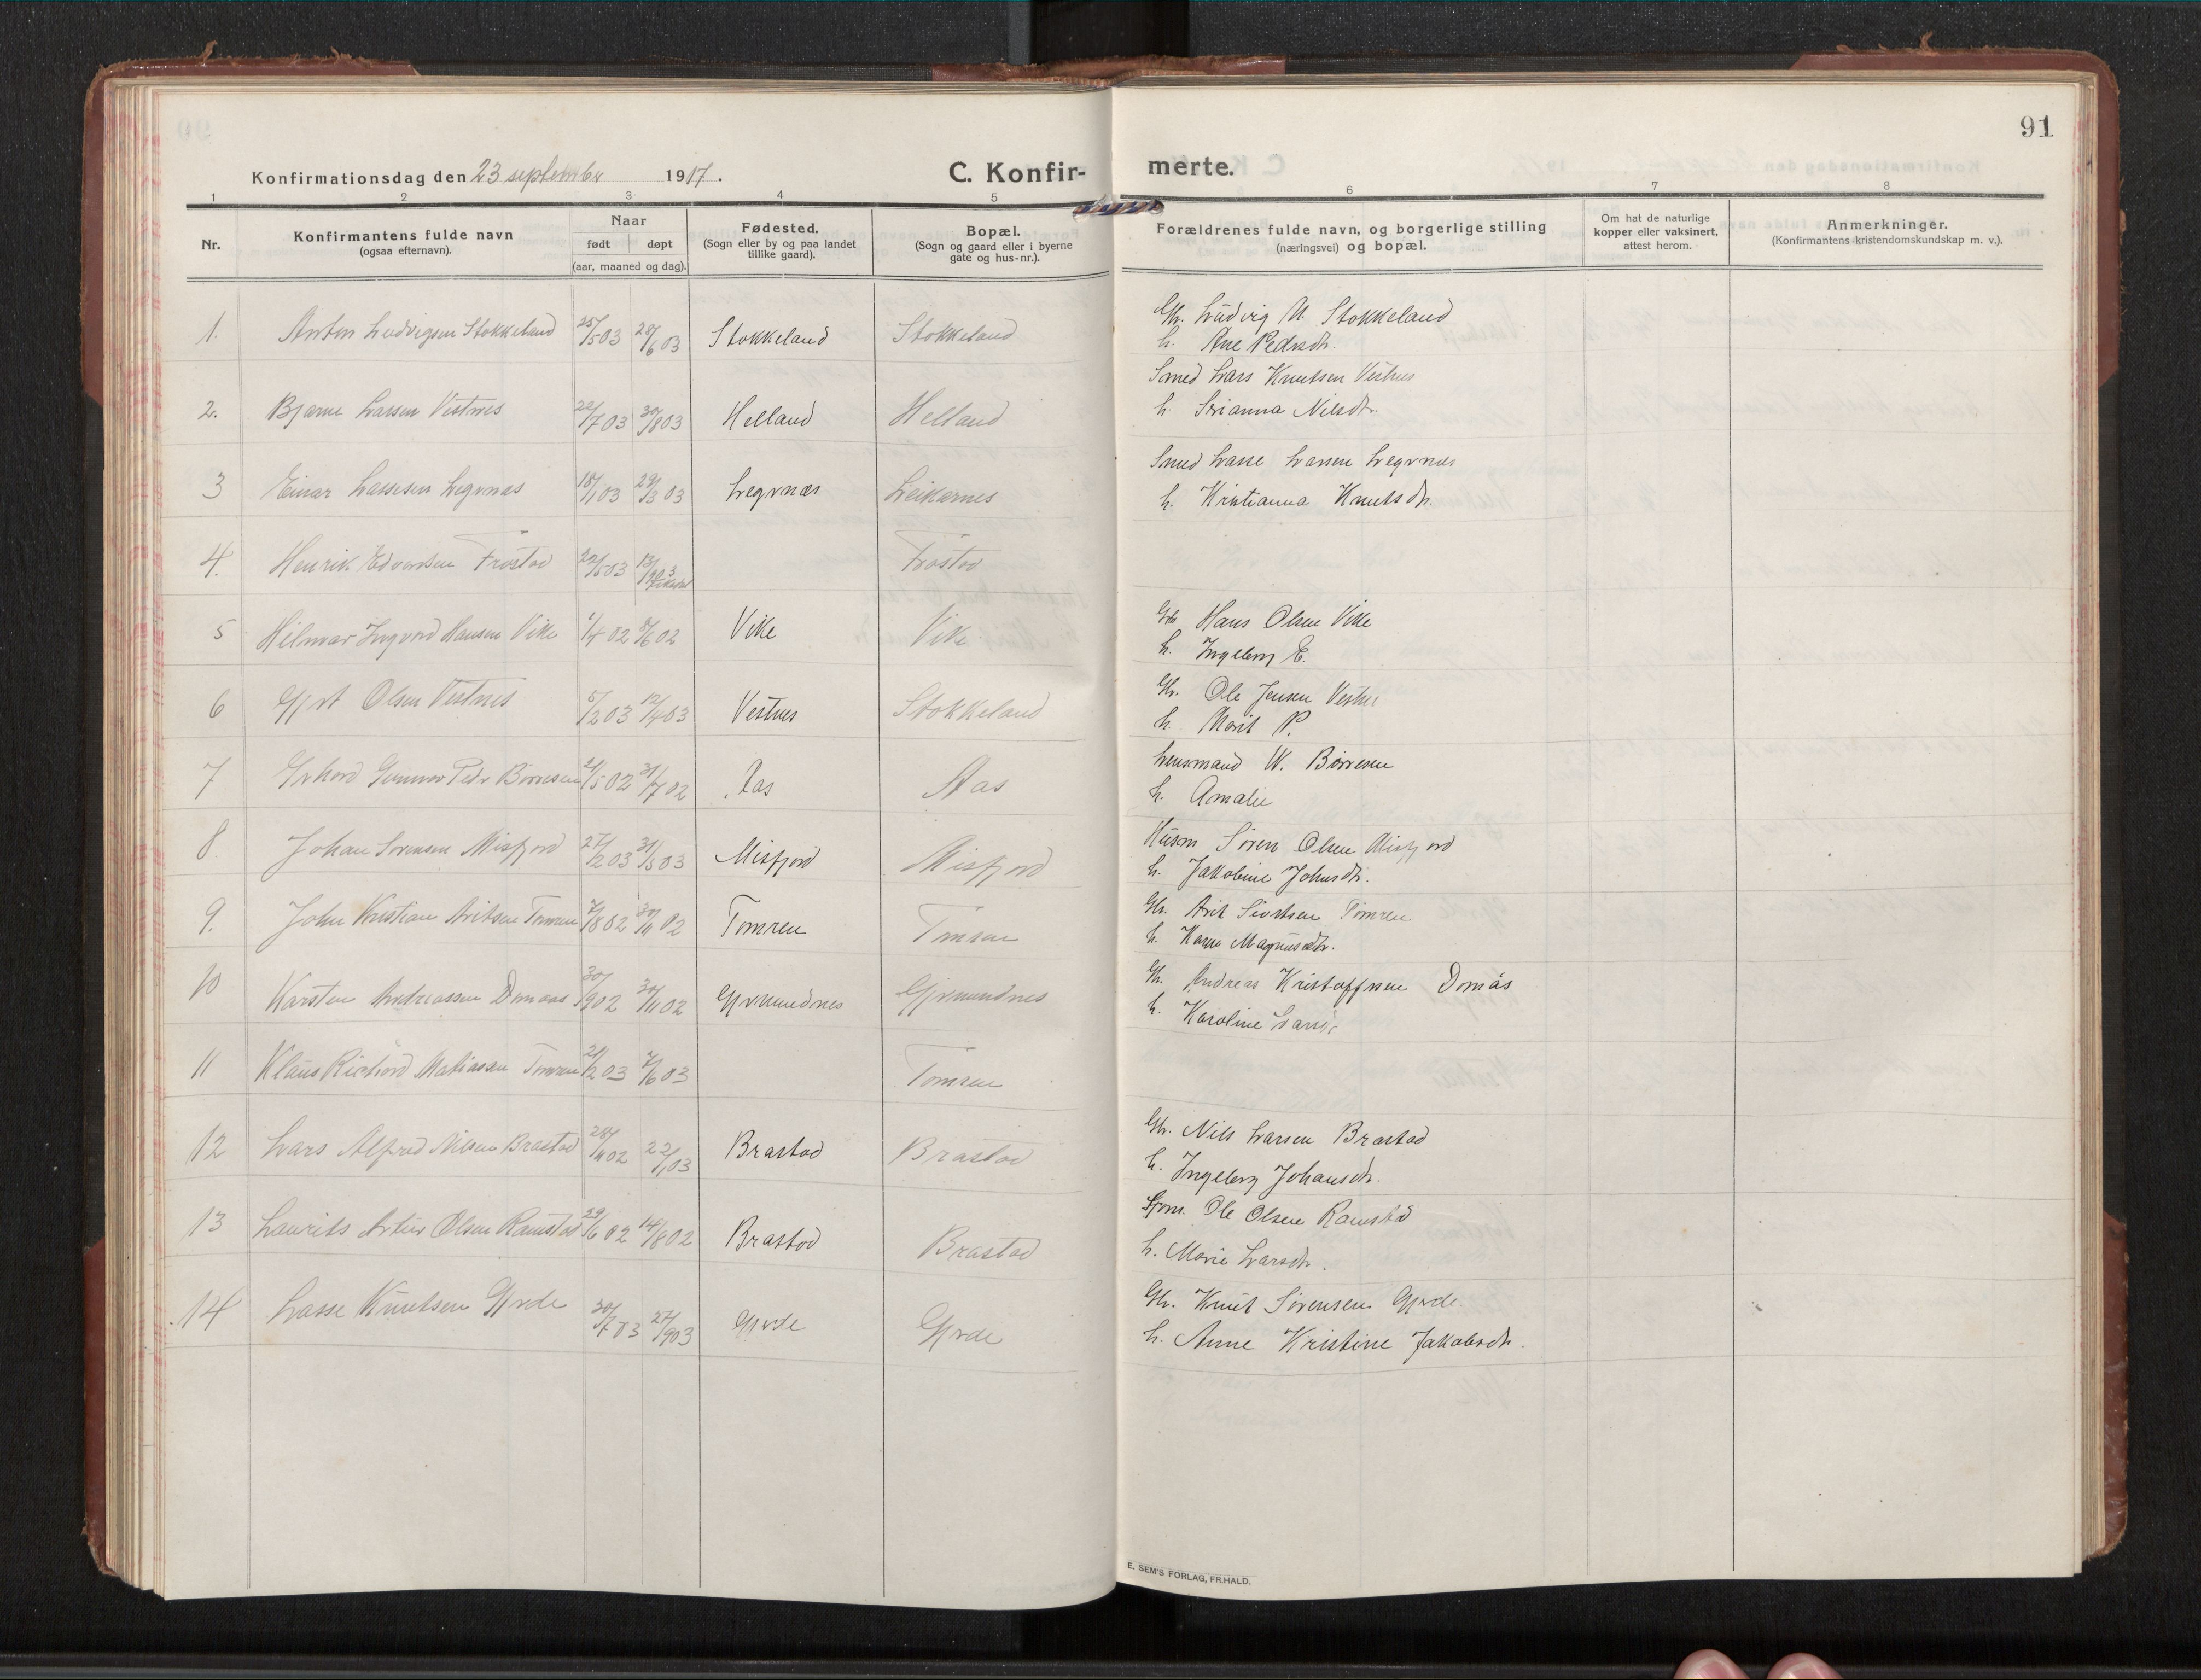 91
Konfirmationsdag den 23 september 1917.
C. Konfir-
merte.
1 2 3 4 5 6 7 8
Nr.
Konfirmantens fulde navn
(ogsaa efternavn).
Naar
født døpt
(aar, maaned og dag).
Fødested.
(Sogn eller by og paa landet
tillike gaard).
Bopæl.
(Sogn og gaard eller i byerne
gate og hus-nr.).
Forældrenes fulde navn, og borgerlige stilling
(næringsvei) og bopæl.
Om hat de naturlige
kopper eller vaksinert,
attest herom.
Anmerkninger.
(Konfirmantens kristendomskundskap m. v.).
1. Anton Ludvigsen Stokkeland 25/5 03 28/6 03 Stokkeland Stokkeland
Gbr. Ludvig A. Stokkeland
h. Ane Pedrsdtr.
2. Bjarne Larsen Vestnes 22/7 03 30/8 03 Helland Helland
Smed Lars Knutsen Vestnes
h. Serianna Nilsdtr.
3 Einar Lassesen Legrnæs 18/1 03 29/3 03 Legrnæs Leikarnes
Smed Lasse Larsen Legrnæs
h. Kristianna Knutsdtr.
4. Henrik Edvardsen Frostad 22/5 03 13/9 03 Frostad
5 Hilmar Ingvard Hansen Vike 1/4 02 8/6 02 Vike Vike
Gbr Hans Olsen Vike
h. Ingeberg E.
6 Gjert Olsen Vestnes 5/2 03 12/4 03 Vestnes Stokkeland
Gbr. Ole Jensen Vestnes
h. Marit P.
7 Gerhard Gunnar Pedr Børresen 21/5 02 31/7 02 Aas Aas
Lensmand W. Børresen
h. Amalie
8. Johan Sørensen Misfjord 27/2 03 31/5 03 Misfjord Misfjord
Husm Søren Olsen Misfjord
h. Jakobine Johnsdtr.
9. John Kristian Aritsen Tomren 7/8 02 30/11 02 Tomren Tomren
Gbr. Arit Sivertsen Tomren
h. Karen Magnusdtr.
10 Karsten Andreassen Domaas 30/9 02 30/11 02 Gjermundnes Gjermundnes
Gbr. Andreas Kristoffersen Domås
h. Karoline Larsdtr
11 Klaus Richard Matiassen Tomren 21/2 03 7/6 03 Tomren
12 Lars Alfred Nilsen Brastad 28/11 02 22/1 03 Brastad Brastad
Gbr. Nils Larsen Brastad
h. Ingeberg Johansdtr.
13 Laurits Artur Olsen Ramstad 29/6 02 14/8 02 Brastad Brastad
Ole Olsen Ramstad
h. Marie Larsdtr.
14 Lasse Knutsen Gjerde 30/7 03 27/9 03 Gjerde Gjerde
Gbr. Knut Sørensen Gjerde.
h. Anne Kristine Jakobsdtr.
E. SEM'S FORLAG, FR.HALD.